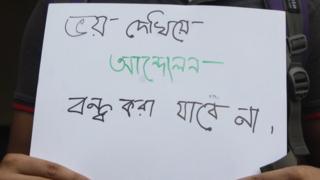 ভয় দেখিয়ে
আন্দোলন
বন্ধ করা যাবে না।